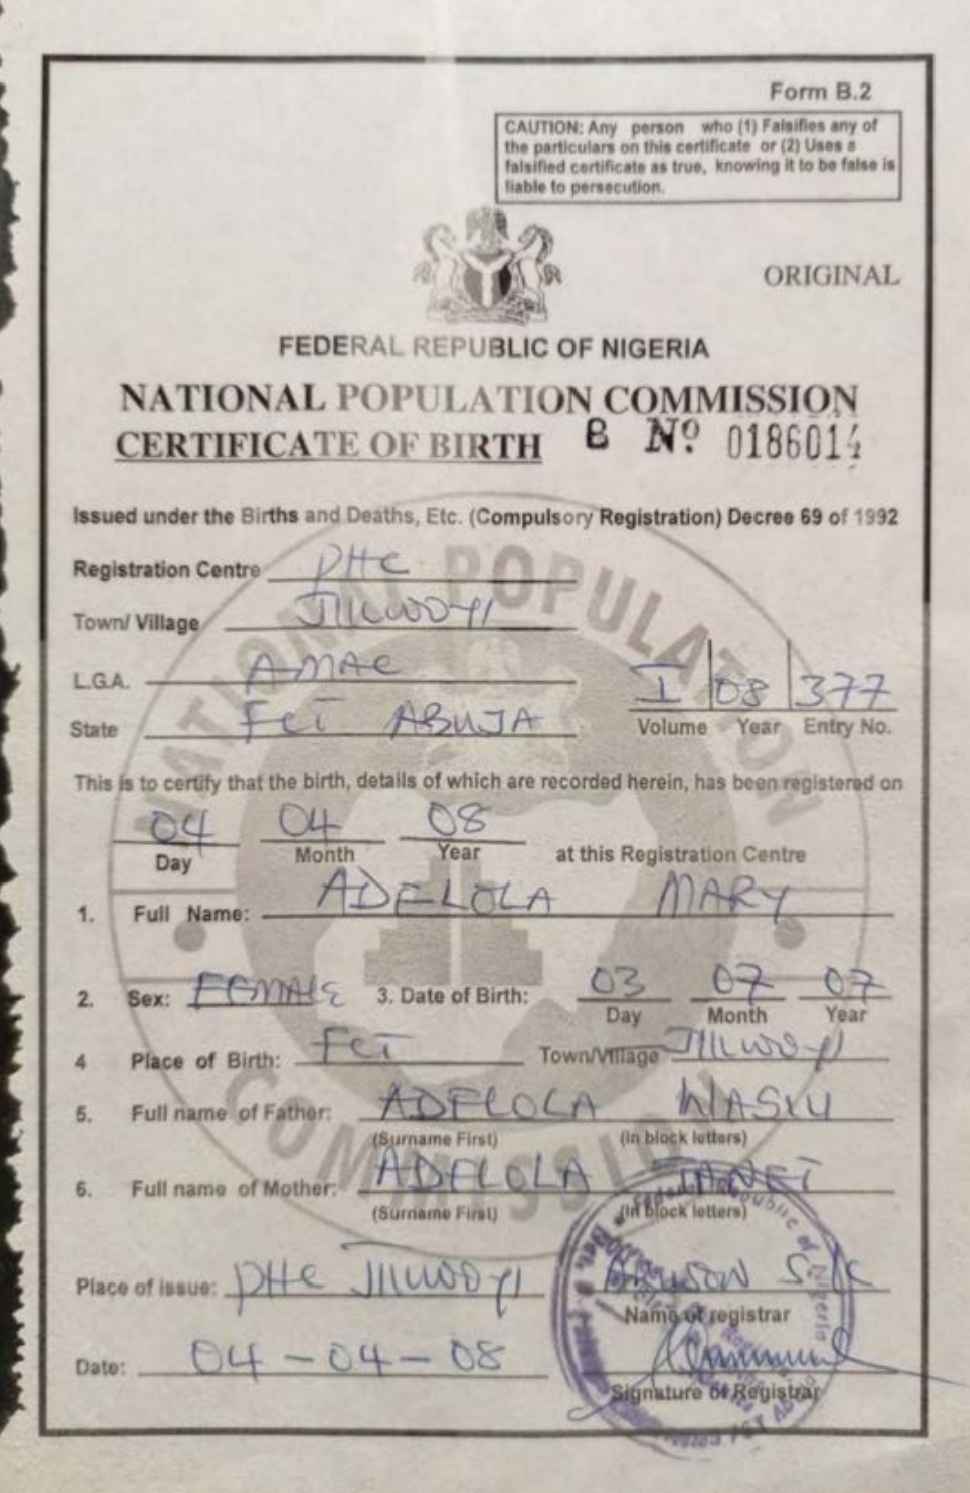 Form B.2
CAUTION: Any person who (1) Falsifies any of
the particulars on this certificate or (2) Uses a
falsified certificate as true, knowing it to be false is
liable to persecution.
ORIGINAL
FEDERAL REPUBLIC OF NIGERIA
NATIONAL POPULATION COMMISSION
CERTIFICATE OF BIRTH B Nº 0186014
Issued under the Births and Deaths, Etc. (Compulsory Registration) Decree 69 of 1992
Registration Centre PHC
Town/ Village JIKWOYI
L.G.A. AMAC
State FCT ABUJA
I 08 377
Volume Year Entry No.
This is to certify that the birth, details of which are recorded herein, has been registered on
04 04 08
Day Month Year at this Registration Centre
1. Full Name: ADELOLA MARY
2. Sex: FEMALE 3. Date of Birth: 03 07 07
Day Month Year
4 Place of Birth: FCT Town/Village JIKWOYI
5. Full name of Father: ADELOLA WASIU
(Surname First) (In block letters)
6. Full name of Mother: ADELOLA JANET
(Surname First) (In block letters)
Place of issue: PHC JIKWOYI
Name of registrar
Date: 04-04-08
Signature of Registrar
NATIONAL POPULATION COMMISSION